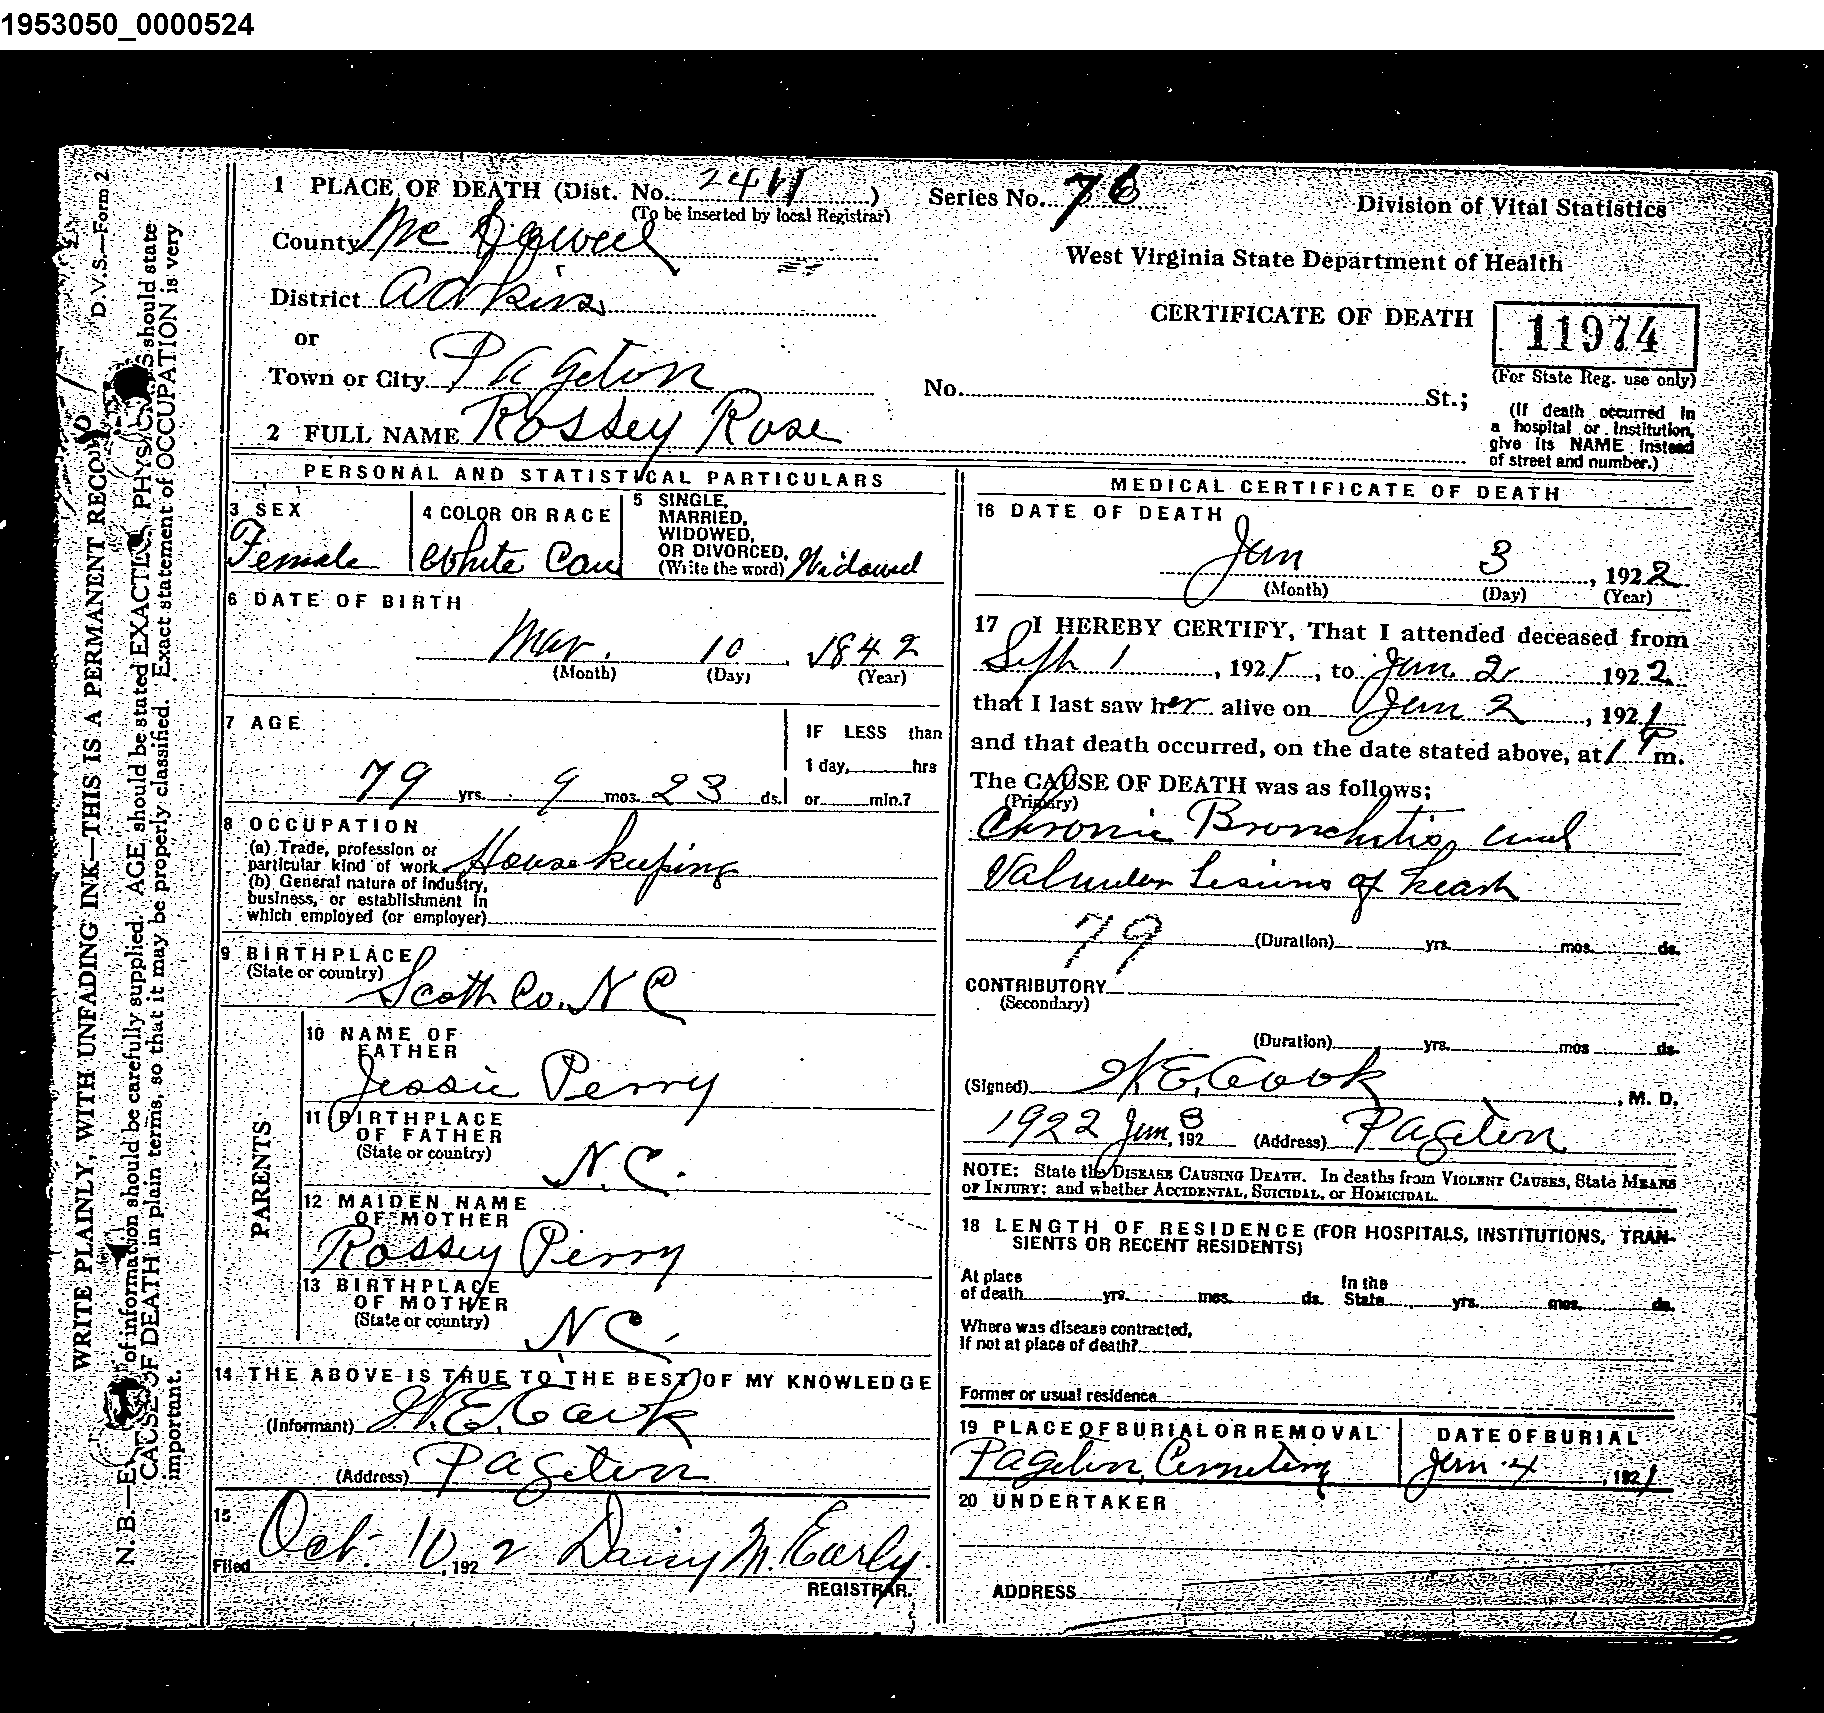 1953050_0000524
D.V.S.—Form 2
WRITE PLAINLY, WITH UNFADING INK—THIS IS A PERMANENT RECORD
N. B.—E of information should be carefully supplied. AGE should be stated EXACTLY. PHYSIC S should state
CAUSE OF DEATH in plain terms, so that it may be properly classified. Exact statement of OCCUPATION is very
important.
1 PLACE OF DEATH (Dist. No. 2411 ) Series No. 76
(To be inserted by local Registrar)
Division of Vital Statistics
County Mc Dowell
West Virginia State Department of Health
District Adkins
CERTIFICATE OF DEATH 11974
or
(For State Reg. use only)
Town or City Pageton No. St.;
(If death occurred in
a hospital or institution,
give its NAME instead
of street and number.)
2 FULL NAME Rossey Rose
PERSONAL AND STATISTICAL PARTICULARS
3 SEX
Female
4 COLOR OR RACE
White Cau
5 SINGLE,
MARRIED,
WIDOWED,
OR DIVORCED,
(Write the word) Widowed
6 DATE OF BIRTH
Mar. 10 1842
(Month) (Day) (Year)
7 AGE
IF LESS than
1 day, hrs
79 yrs. 9 mos. 23 ds. or min.?
8 OCCUPATION
(a) Trade, profession or
particular kind of work House keeping
(b) General nature of industry,
business, or establishment in
which employed (or employer)
9 BIRTHPLACE
(State or country)
Scott Co. N C
PARENTS
10 NAME OF
FATHER
Jessie Perry
11 BIRTHPLACE
OF FATHER
(State or country)
N.C.
12 MAIDEN NAME
OF MOTHER
Rossey Perry
13 BIRTHPLACE
OF MOTHER
(State or country)
N.C.
14 THE ABOVE IS TRUE TO THE BEST OF MY KNOWLEDGE
(Informant) W.E. Cook
(Address) Pageton
15
Filed Oct. 10, 192 2 Daisy M. Early.
REGISTRAR.
MEDICAL CERTIFICATE OF DEATH
16 DATE OF DEATH
Jan 3, 1922
(Month) (Day) (Year)
17 I HEREBY CERTIFY, That I attended deceased from
Sept 1, 1921, to Jan. 2 1922
that I last saw her alive on Jan 2, 1921
and that death occurred, on the date stated above, at 1 P m.
The CAUSE OF DEATH was as follows:
(Primary)
Chronic Bronchitis and
Valvular Lesions of heart
79 (Duration) yrs. mos. ds.
CONTRIBUTORY
(Secondary)
(Duration) yrs. mos ds.
(Signed) W.E. Cook, M. D.
1922 Jan 3, 192 (Address) Pageton
NOTE: State the DISEASE CAUSING DEATH. In deaths from VIOLENT CAUSES, State MEANS
OF INJURY; and whether ACCIDENTAL, SUICIDAL, or HOMICIDAL.
18 LENGTH OF RESIDENCE (FOR HOSPITALS, INSTITUTIONS, TRAN-
SIENTS OR RECENT RESIDENTS)
At place
of death yrs. mos. ds.
In the
State yrs. mos. ds.
Where was disease contracted,
If not at place of death?
Former or usual residence
19 PLACE OF BURIAL OR REMOVAL
Pageton Cemetery
DATE OF BURIAL
Jan. 4, 1921
20 UNDERTAKER
ADDRESS